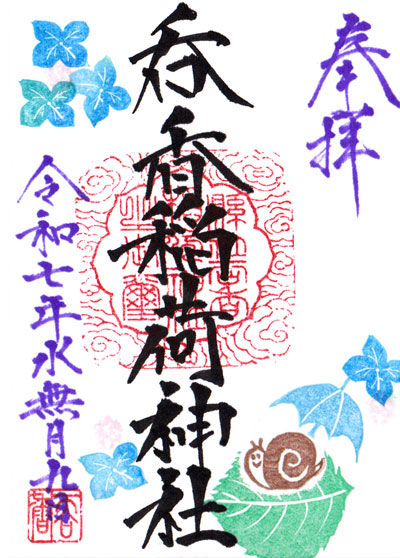 奉拝
呑香稲荷神社
令和七年水無月九日